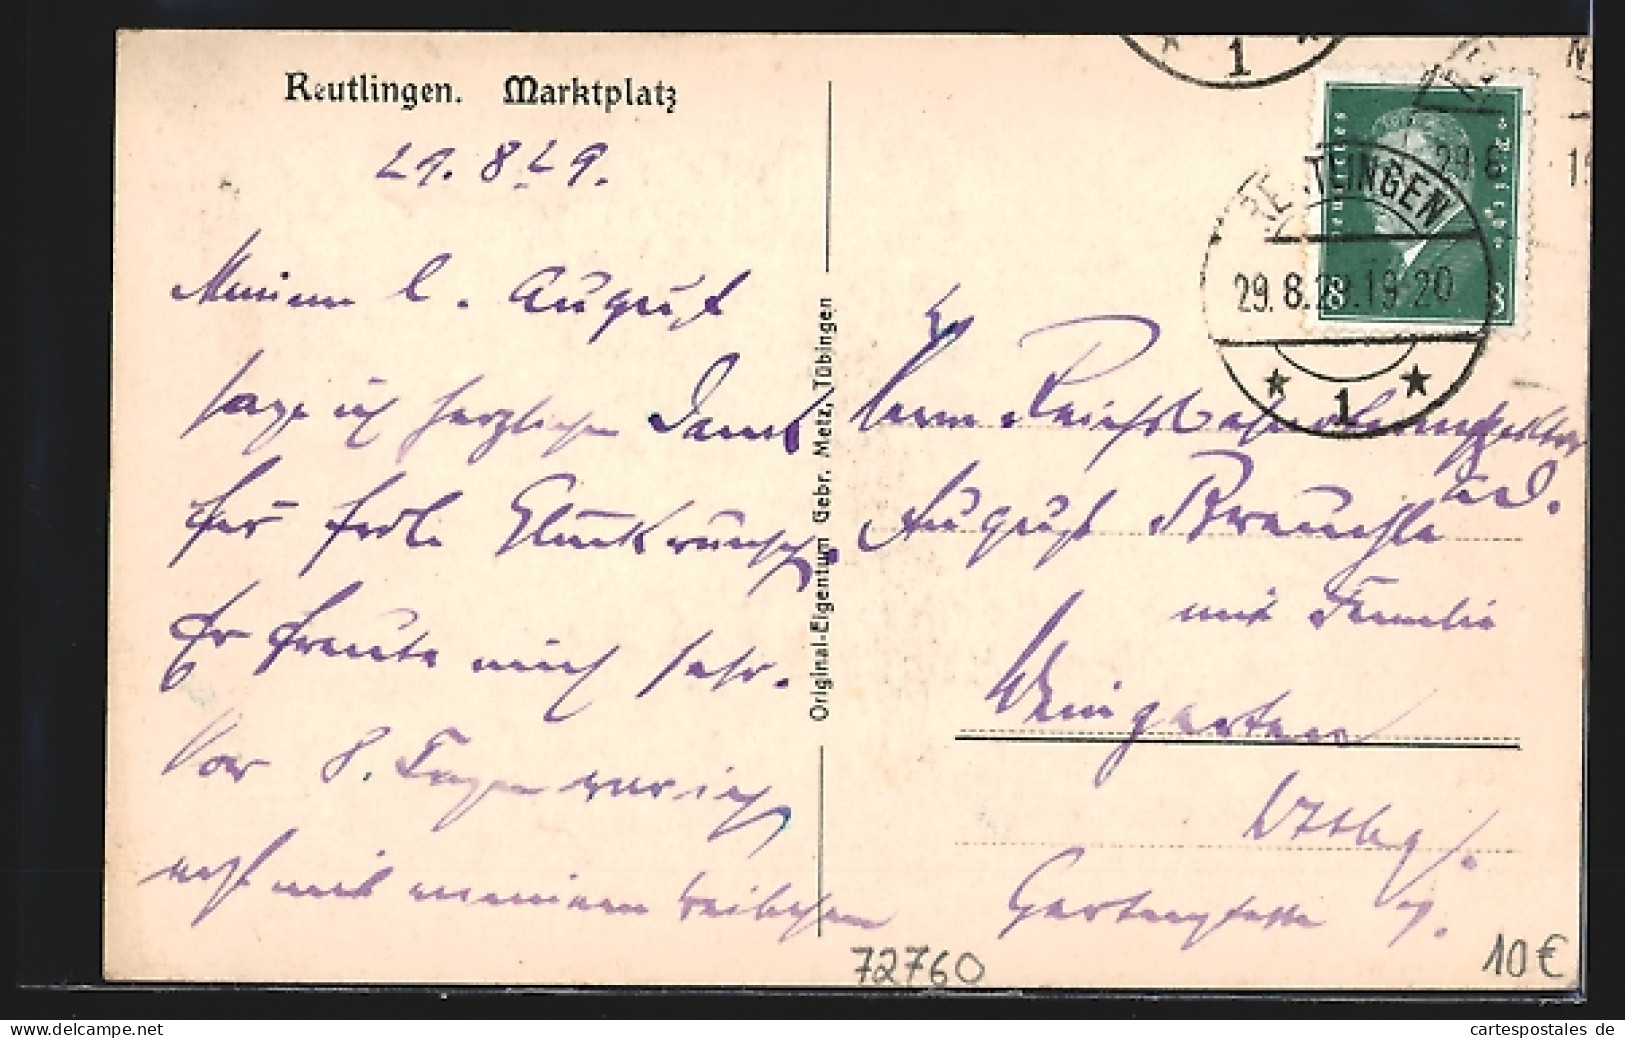 Reutlingen. Marktplatz
29. 8. 29.
Meinem l. August
sage ich herzlichen Dank
für frdl. Glückwunsch.
Er freute mich sehr.
Vor 8. Tagen war ich
mit meinem
Original-Eigentum Gebr. Metz, Tübingen
REUTLINGEN
29. 8. 29. 19-20
* 1 *
* 1 *
Deutsches Reich
8 8
Herrn Reichsbahnoberinspektor
August
mit Familie
Weingarten
Wttbg.
Gartenstraße
72760
10€
cartespostales de